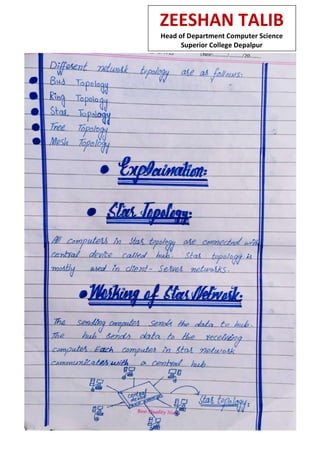 ZEESHAN TALIB
Head of Department Computer Science
Superior College Depalpur
Different network topology are as follows:
Bus Topology
Ring Topology
Star Topology
Tree Topology
Mesh Topology
Explaination:
Star Topology:
All computers in star topology are connected with
central device called hub. Star topology is
mostly used in client-server networks.
Working of Star Network.
The sending computer sends the data to hub.
The hub sends data to the receiving
computer. Each computer in star network
communicates with a central hub.
central
Star topology: